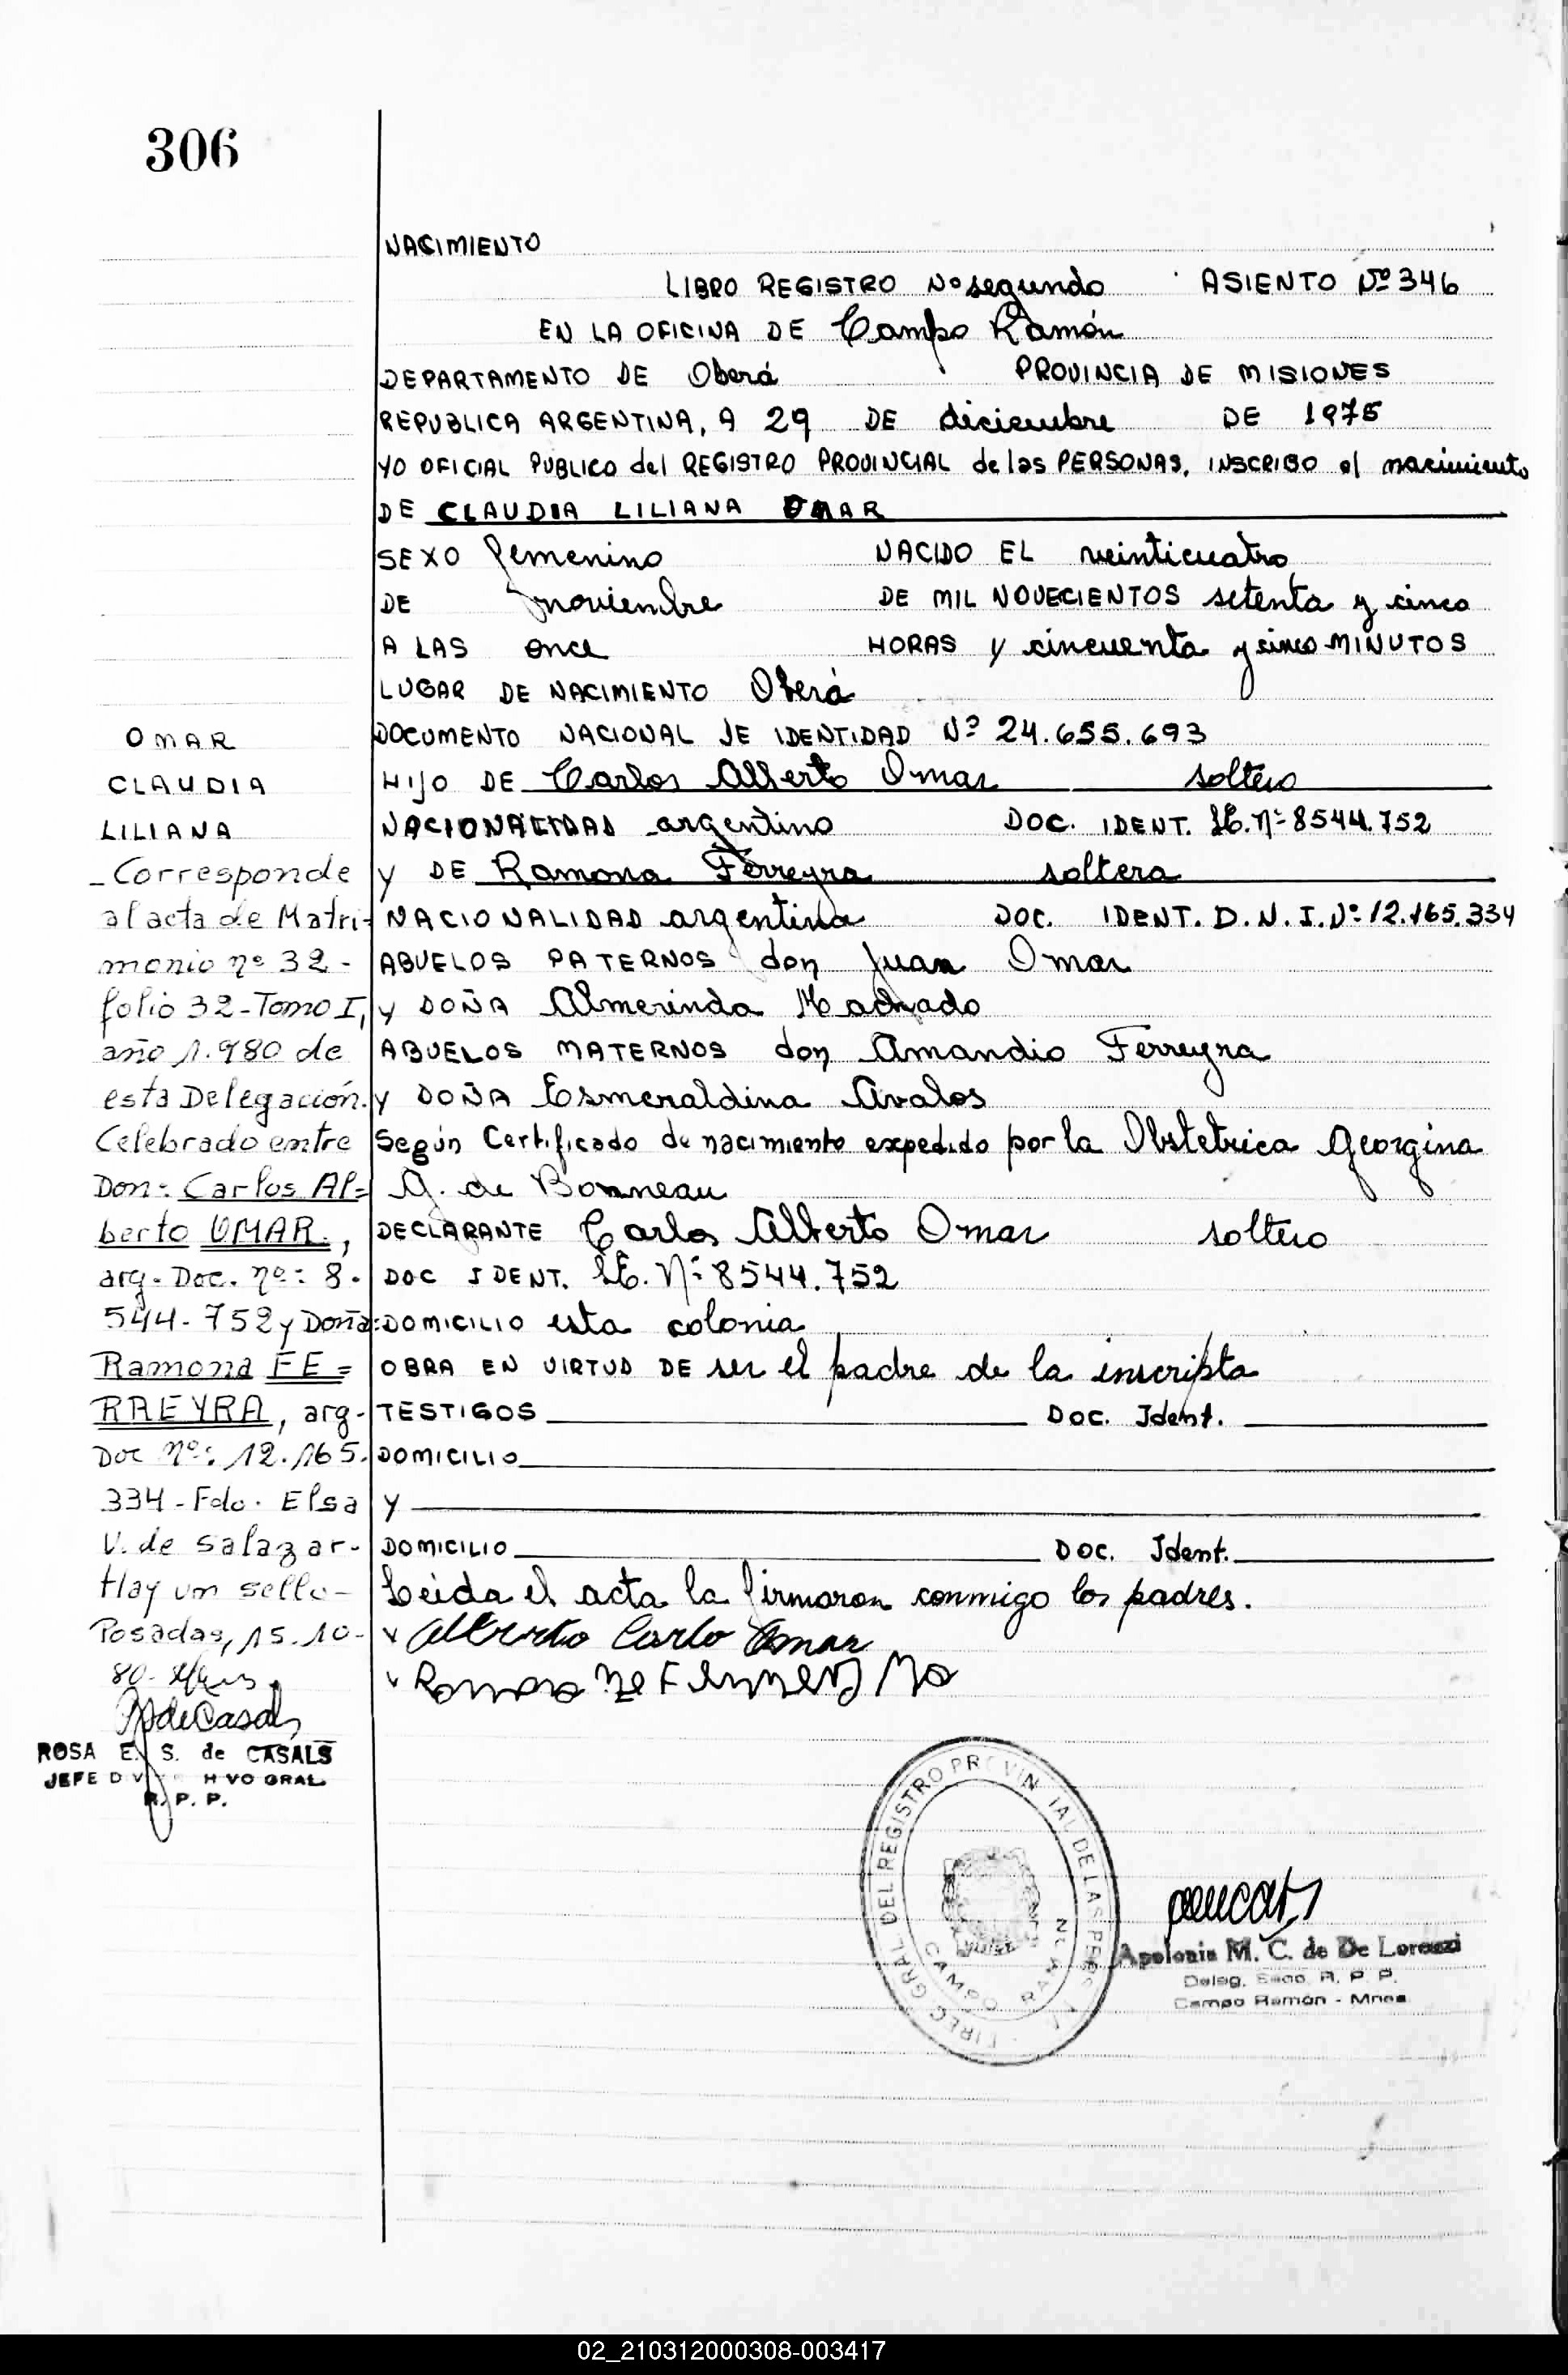 306
NACIMIENTO
LIBRO REGISTRO Nº segundo ASIENTO Nº 346
EN LA OFICINA DE Campo Ramón
DEPARTAMENTO DE Oberá PROVINCIA DE MISIONES
REPUBLICA ARGENTINA, A 29 DE diciembre DE 1975
YO OFICIAL PUBLICO del REGISTRO PROVINCIAL de las PERSONAS, INSCRIBO el nacimiento
DE CLAUDIA LILIANA OMAR
SEXO femenino NACIDO EL veinticuatro
DE noviembre DE MIL NOVECIENTOS setenta y cinco
A LAS once HORAS y cincuenta y cinco MINUTOS
LUGAR DE NACIMIENTO Oberá
DOCUMENTO NACIONAL DE IDENTIDAD Nº 24.655.693
HIJO DE Carlos Alberto Omar soltero
NACIONALIDAD argentino DOC. IDENT. LE. Nº 8544.752
y DE Ramona Ferreyra soltera
NACIONALIDAD argentina DOC. IDENT. D.N.I. Nº 12.165.334
ABUELOS PATERNOS don Juan Omar
y DOÑA Almerinda Machado
ABUELOS MATERNOS don Amandio Ferreyra
y DOÑA Esmeraldina Avalos
Según Certificado de nacimiento expedido por la Obstetrica Georgina
G. de Bonneau
DECLARANTE Carlos Alberto Omar soltero
DOC IDENT. LE. Nº 8544.752
DOMICILIO esta colonia
OBRA EN VIRTUD DE ser el padre de la inscripta
TESTIGOS Doc. Ident.
DOMICILIO
y
DOMICILIO Doc. Ident.
Leída el acta la firmaron conmigo los padres.
Alberto Carlo Omar
Ramona
OMAR
CLAUDIA
LILIANA
- Corresponde
al acta de Matri-
monio nº 32 -
folio 32 - Tomo I,
año 1.980 de
esta Delegación.
Celebrado entre
Don: Carlos Al=
berto OMAR,
arg. Doc. nº: 8.
544-752 y Doña:
Ramona FE=
RREYRA, arg-
Doc nº: 12.165.
334 - Fdo. Elsa
V. de Salazar-
Hay un sello -
Posadas, 15.10-
80-
ROSA E. S. de CASALS
JEFE GRAL.
R. P. P.
DIREC GRAL DEL REGISTRO PROVINCIAL DE LAS PERS
CAMPO RAMON
Apolonia M. C. de De Lorenzi
Deleg. R. P. P.
Campo Ramón - Mnes.
02_210312000308-003417